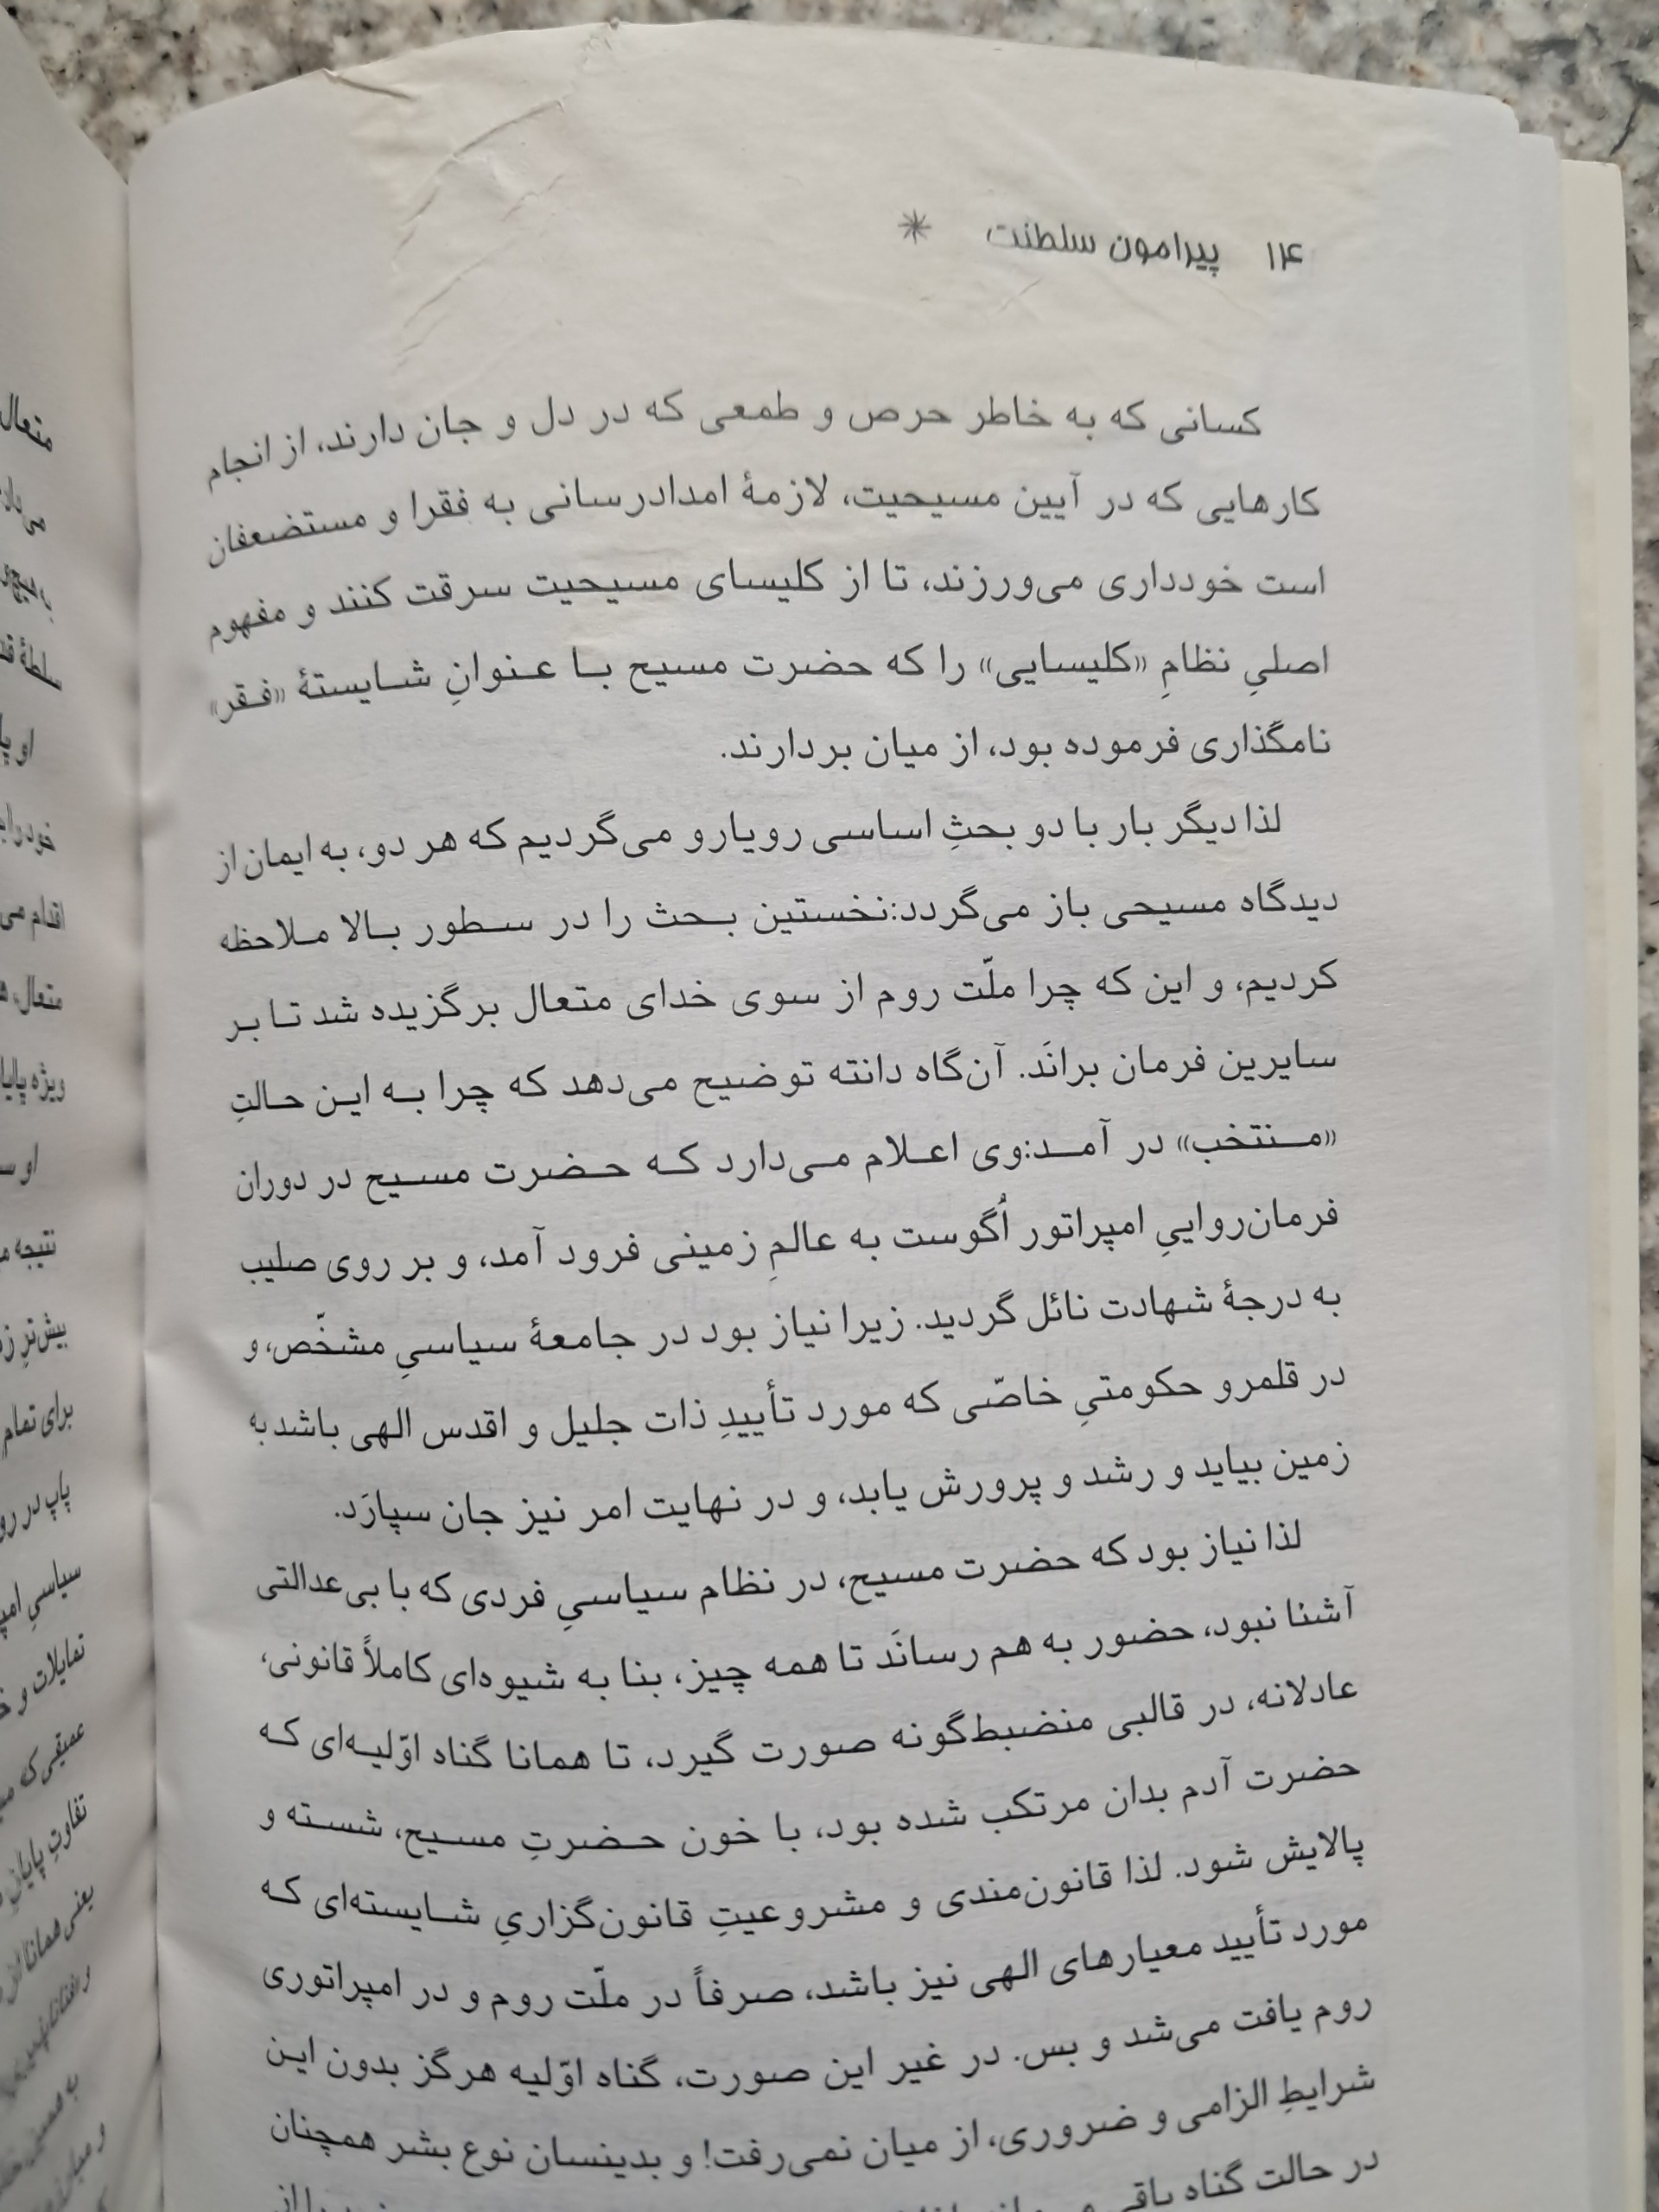 ۱۴ پیرامون سلطنت *
کسانی که به خاطر حرص و طمعی که در دل و جان دارند، از انجام
کارهایی که در آیین مسیحیت، لازمهٔ امدادرسانی به فقرا و مستضعفان
است خودداری می‌ورزند، تا از کلیسای مسیحیت سرقت کنند و مفهوم
اصلیِ نظامِ «کلیسایی» را که حضرت مسیح با عنوانِ شایستهٔ «فقر»
نامگذاری فرموده بود، از میان بردارند.
لذا دیگر بار با دو بحثِ اساسی رویارو می‌گردیم که هر دو، به ایمان از
دیدگاه مسیحی باز می‌گردد:نخستین بحث را در سطور بالا ملاحظه
کردیم، و این که چرا ملّت روم از سوی خدای متعال برگزیده شد تا بر
سایرین فرمان برانَد. آن‌گاه دانته توضیح می‌دهد که چرا به این حالتِ
«منتخب» در آمد:وی اعلام می‌دارد که حضرت مسیح در دوران
فرمان‌رواییِ امپراتور اُگوست به عالمِ زمینی فرود آمد، و بر روی صلیب
به درجهٔ شهادت نائل گردید. زیرا نیاز بود در جامعهٔ سیاسیِ مشخّص، و
در قلمرو حکومتیِ خاصّی که مورد تأییدِ ذات جلیل و اقدس الهی باشد به
زمین بیاید و رشد و پرورش یابد، و در نهایت امر نیز جان سپارَد.
لذا نیاز بود که حضرت مسیح، در نظام سیاسیِ فردی که با بی‌عدالتی
آشنا نبود، حضور به هم رسانَد تا همه چیز، بنا به شیوه‌ای کاملاً قانونی،
عادلانه، در قالبی منضبط‌گونه صورت گیرد، تا همانا گناه اوّلیه‌ای که
حضرت آدم بدان مرتکب شده بود، با خون حضرتِ مسیح، شسته و
پالایش شود. لذا قانون‌مندی و مشروعیتِ قانون‌گزاریِ شایسته‌ای که
مورد تأیید معیارهای الهی نیز باشد، صرفاً در ملّت روم و در امپراتوری
روم یافت می‌شد و بس. در غیر این صورت، گناه اوّلیه هرگز بدون این
شرایطِ الزامی و ضروری، از میان نمی‌رفت! و بدینسان نوع بشر همچنان
در حالت گناه باقی
متعال
سلطهٔ
او
خود را
اقدام می
متعال،
ویژه
او
نتیجه
بیش‌ترِ
برای تمام
پاپ در
سیاسیِ
تمایلات و
عمیقی که
تفاوتِ پایان
یعنی همانا